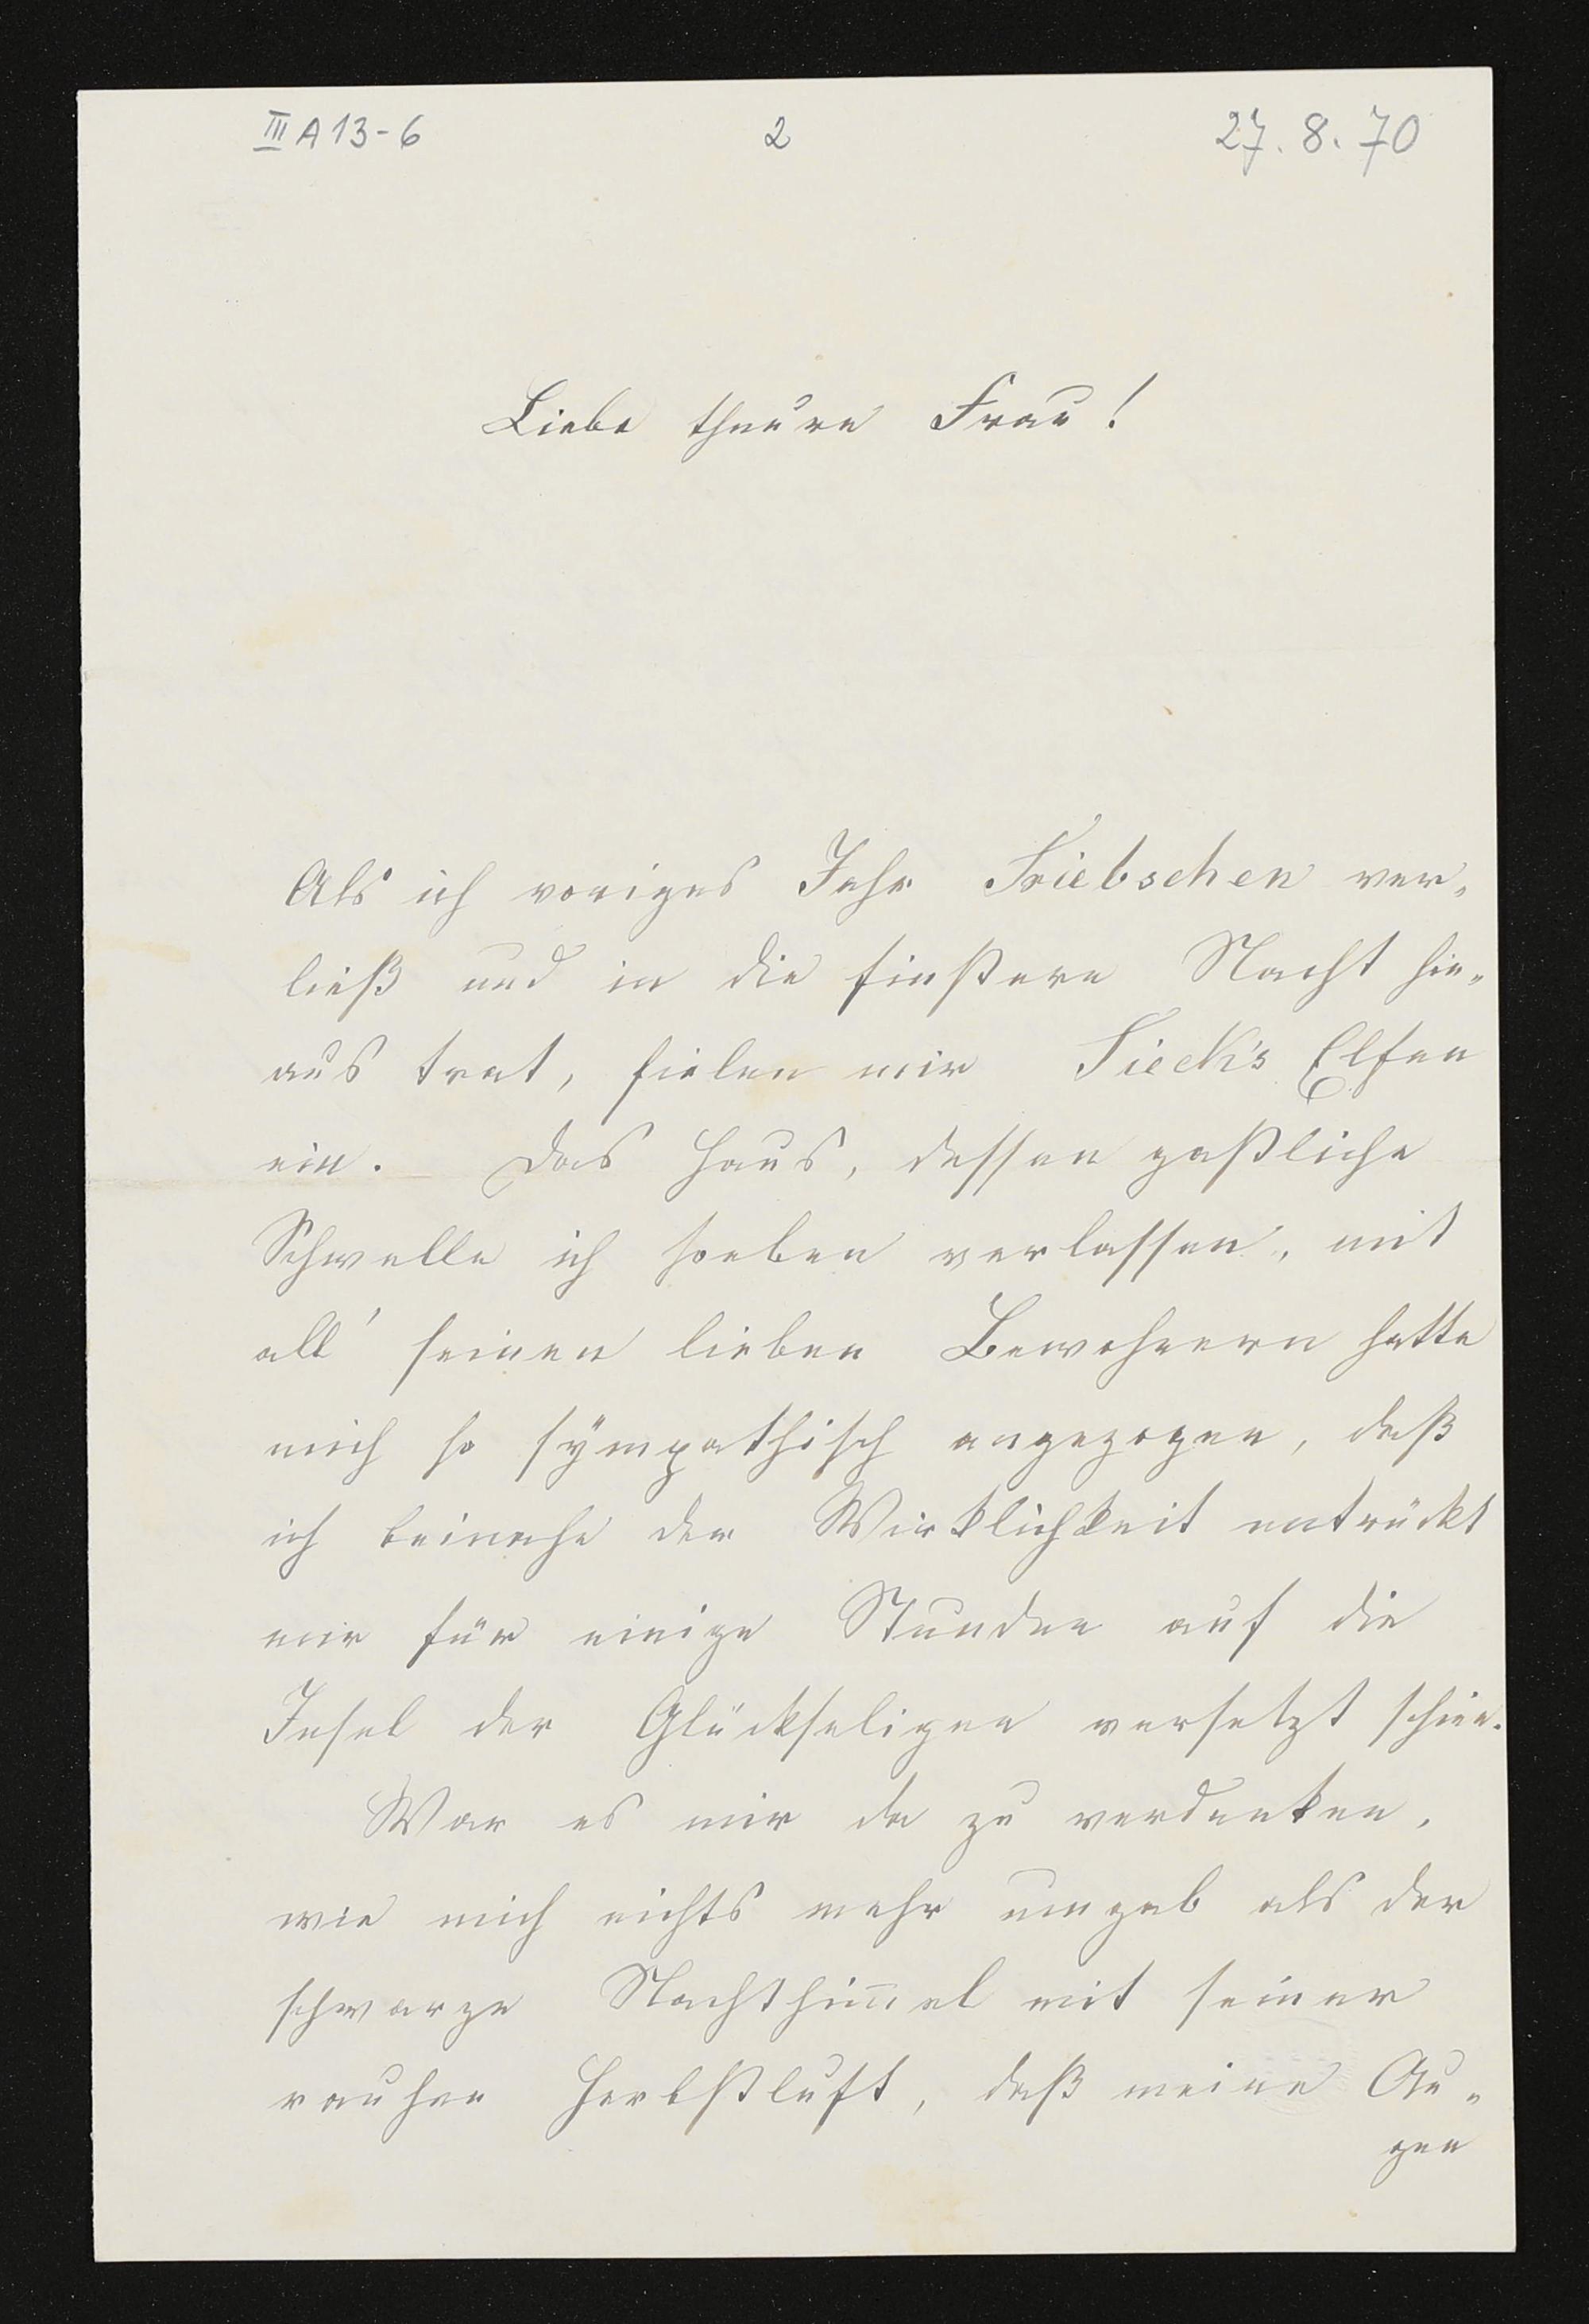 III A 13-6 2 27. 8. 70
Liebe theure Frau!
Als ich voriges Jahr Triebschen ver-
ließ und in die finstere Nacht hin-
aus trat, fielen mir Tieck's Elfen
ein. Das Haus, dessen gastliche
Schwelle ich soeben verlassen, mit
all' seinen lieben Bewohnern hatte
mich so sÿmpathisch angezogen, daß
ich beinahe der Wirklichkeit entrückt
mir für einige Stunden auf die
Insel der Glückseligen versetzt schien.
War es mir da zu verdenken,
wie mich nichts mehr umgab als der
schwarze Nachthim̅el mit seiner
rauhen Herbstluft, daß meine Au-
gen